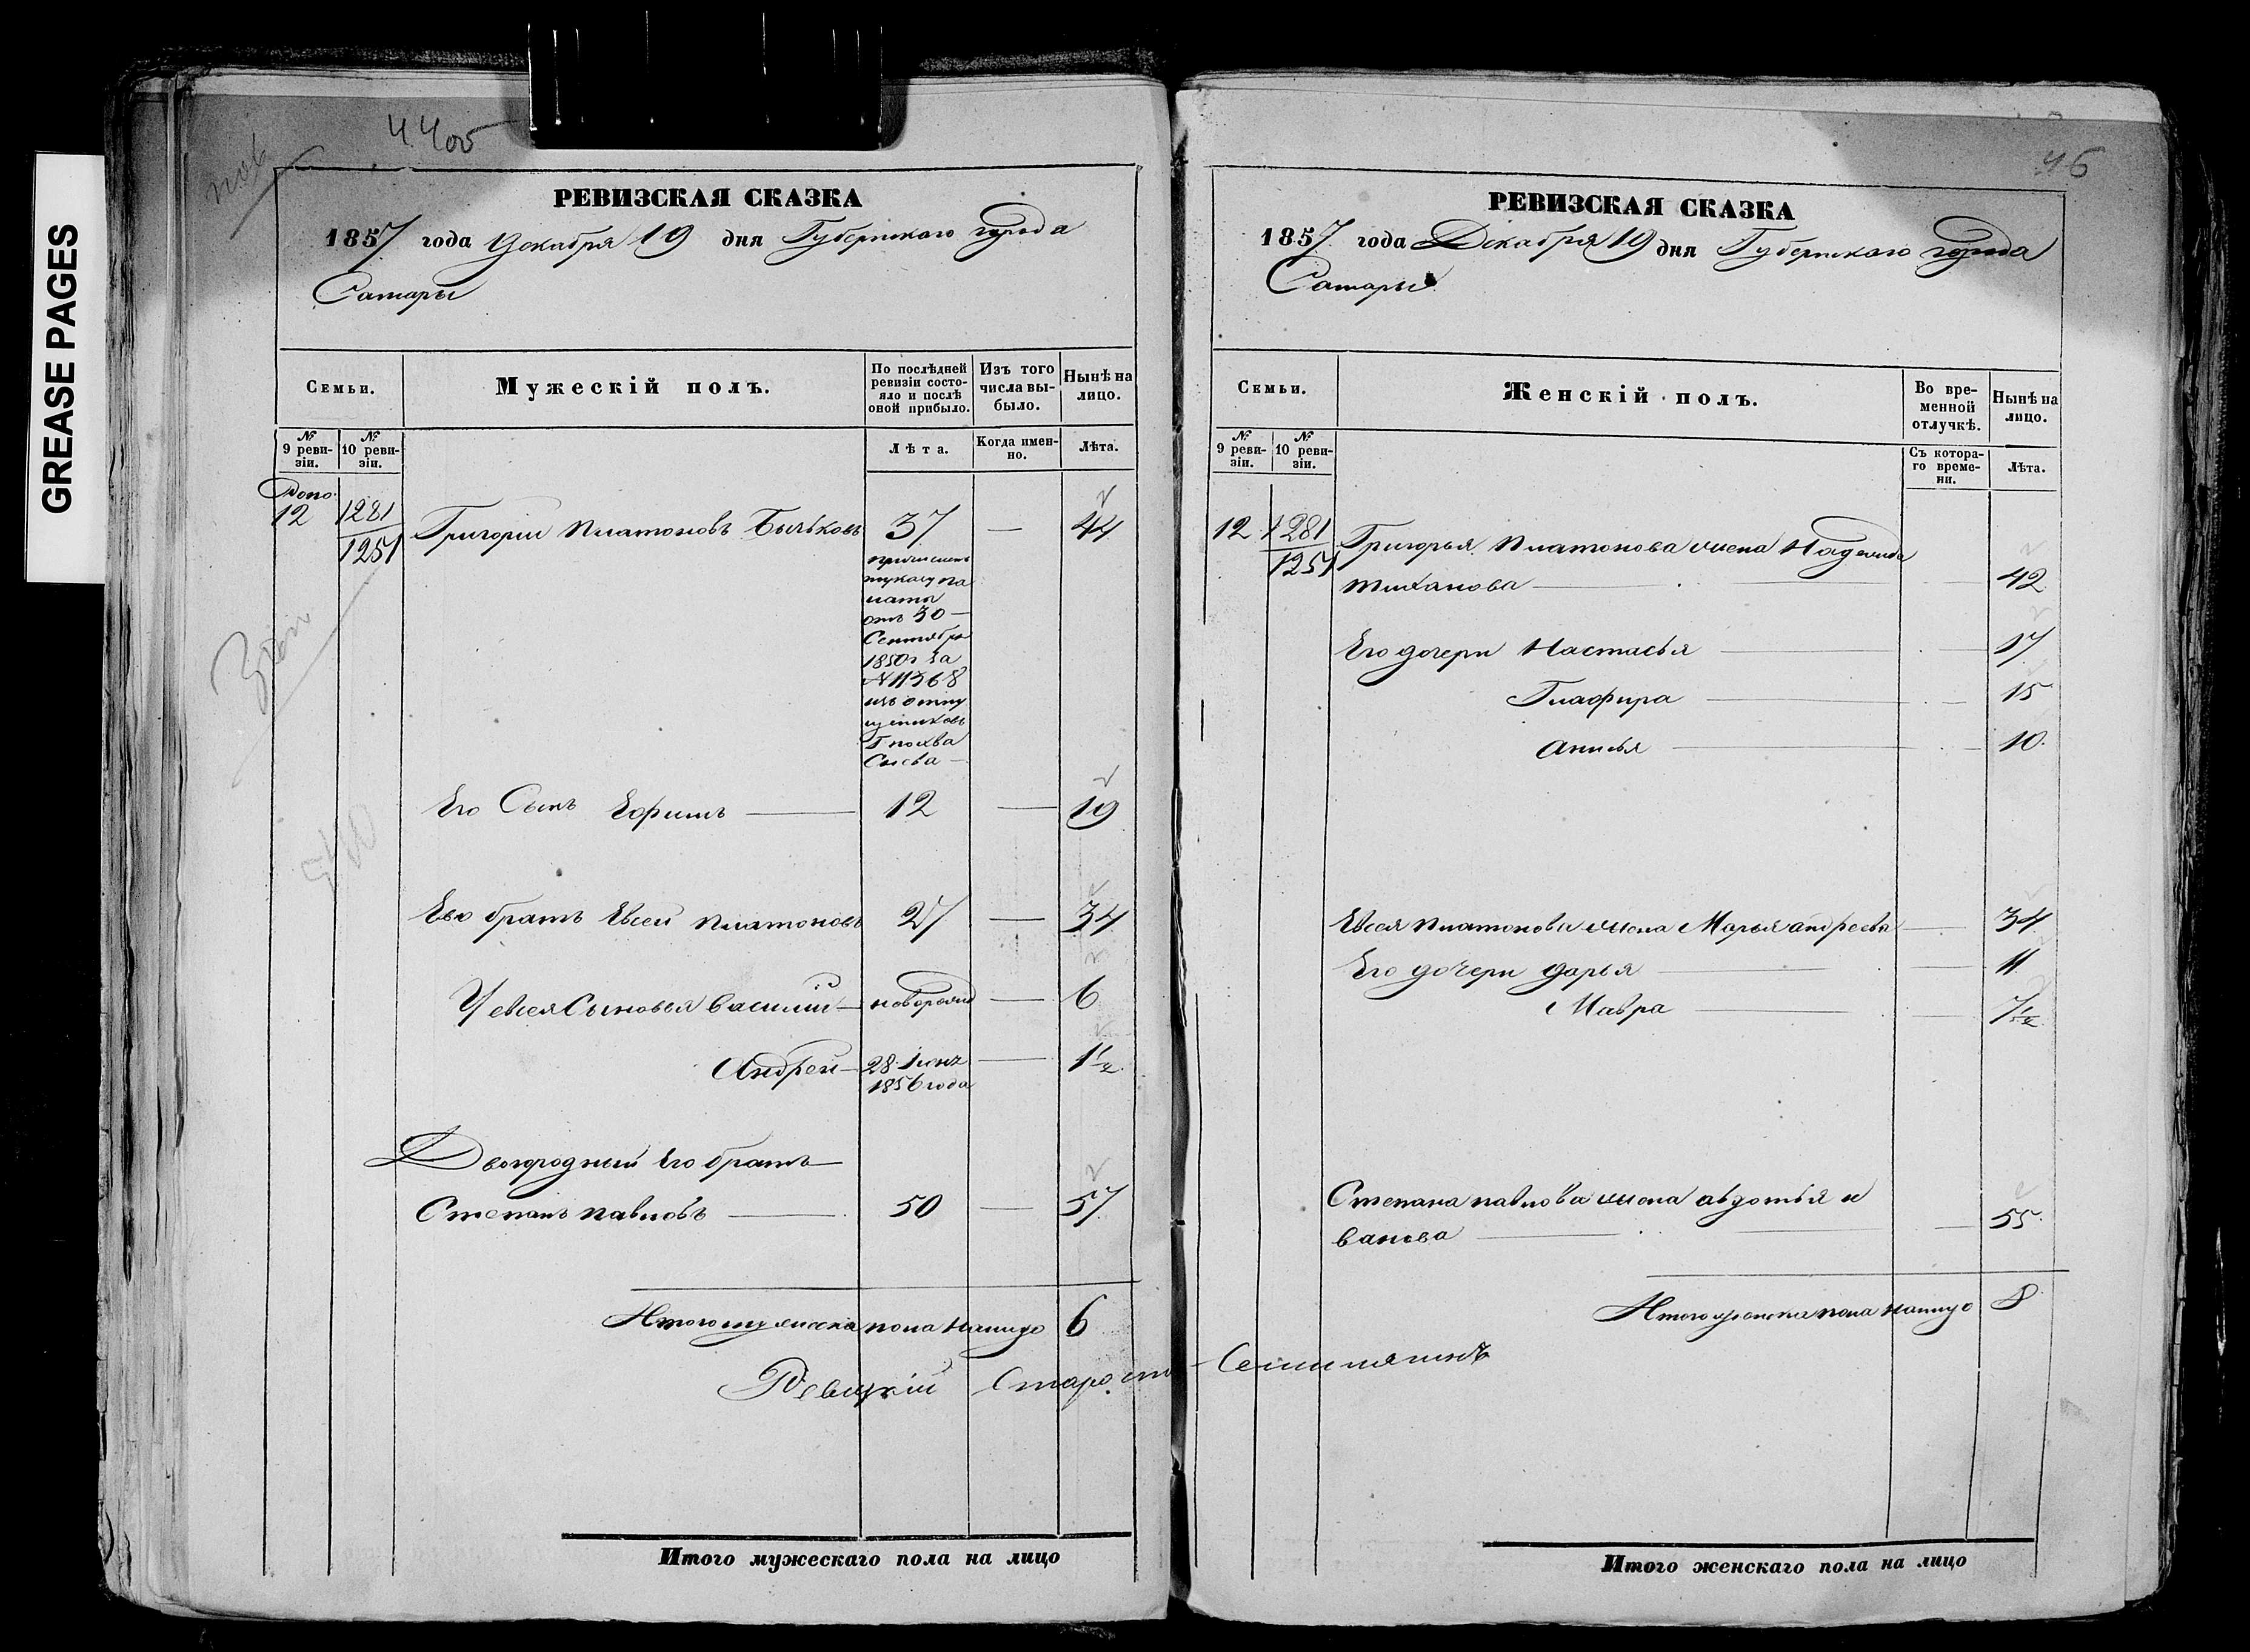 GREASE PAGES
4400
РЕВИЗСКАЯ СКАЗКА
1857 года Декабря 19 дня Губернскаго города
Самары
Семьи.
Мужескій полъ.
По послѣдней ревизіи состо-
яло и послѣ
оной прибыло.
Изъ того
числа вы-
было.
Нынѣ на
лицо.
№
9 реви-
зіи.
№
10 реви-
зіи.
Лѣта.
Когда имен-
но.
Лѣта.
Допо.
12
1281
1251
Григорій Платоновъ Бычковъ 37 — 44
отъ 30
Сентября
1850 г за
№ 11368
Его Сынъ Ефимъ — 12 — 19
Его братъ Евсей Платоновъ 27 — 34
У евсея Сыновья Василій — новорожд — 6
Андрей — 28 Іюня — 1 1/2
1856 года
Двоюродный Его братъ
Степанъ павловъ — 50 — 57
Итого мужеска пола налицо 6
Староста
РЕВИЗСКАЯ СКАЗКА
1857 года Декабря 19 дня Губернскаго города
Самары
Семьи.
Женскій полъ.
Во вре-
менной
отлучкѣ.
Нынѣ на
лицо.
№
9 реви-
зіи.
№
10 реви-
зіи.
Съ котора-
го време-
ни.
Лѣта.
12
1281
1251
Григорья Платонова жена Надежда
— 42
Его дочери Настасья — 17
Глафира — 15
Анисья — 10
Евсея платонова жена Марья андреева — 34
Его дочери дарья — 11
Мавра — 7 1/2
Степана павлова жена авдотья и
ванова — 55
Итого женска пола налицо 8
Итого мужескаго пола на лицо
Итого женскаго пола на лицо